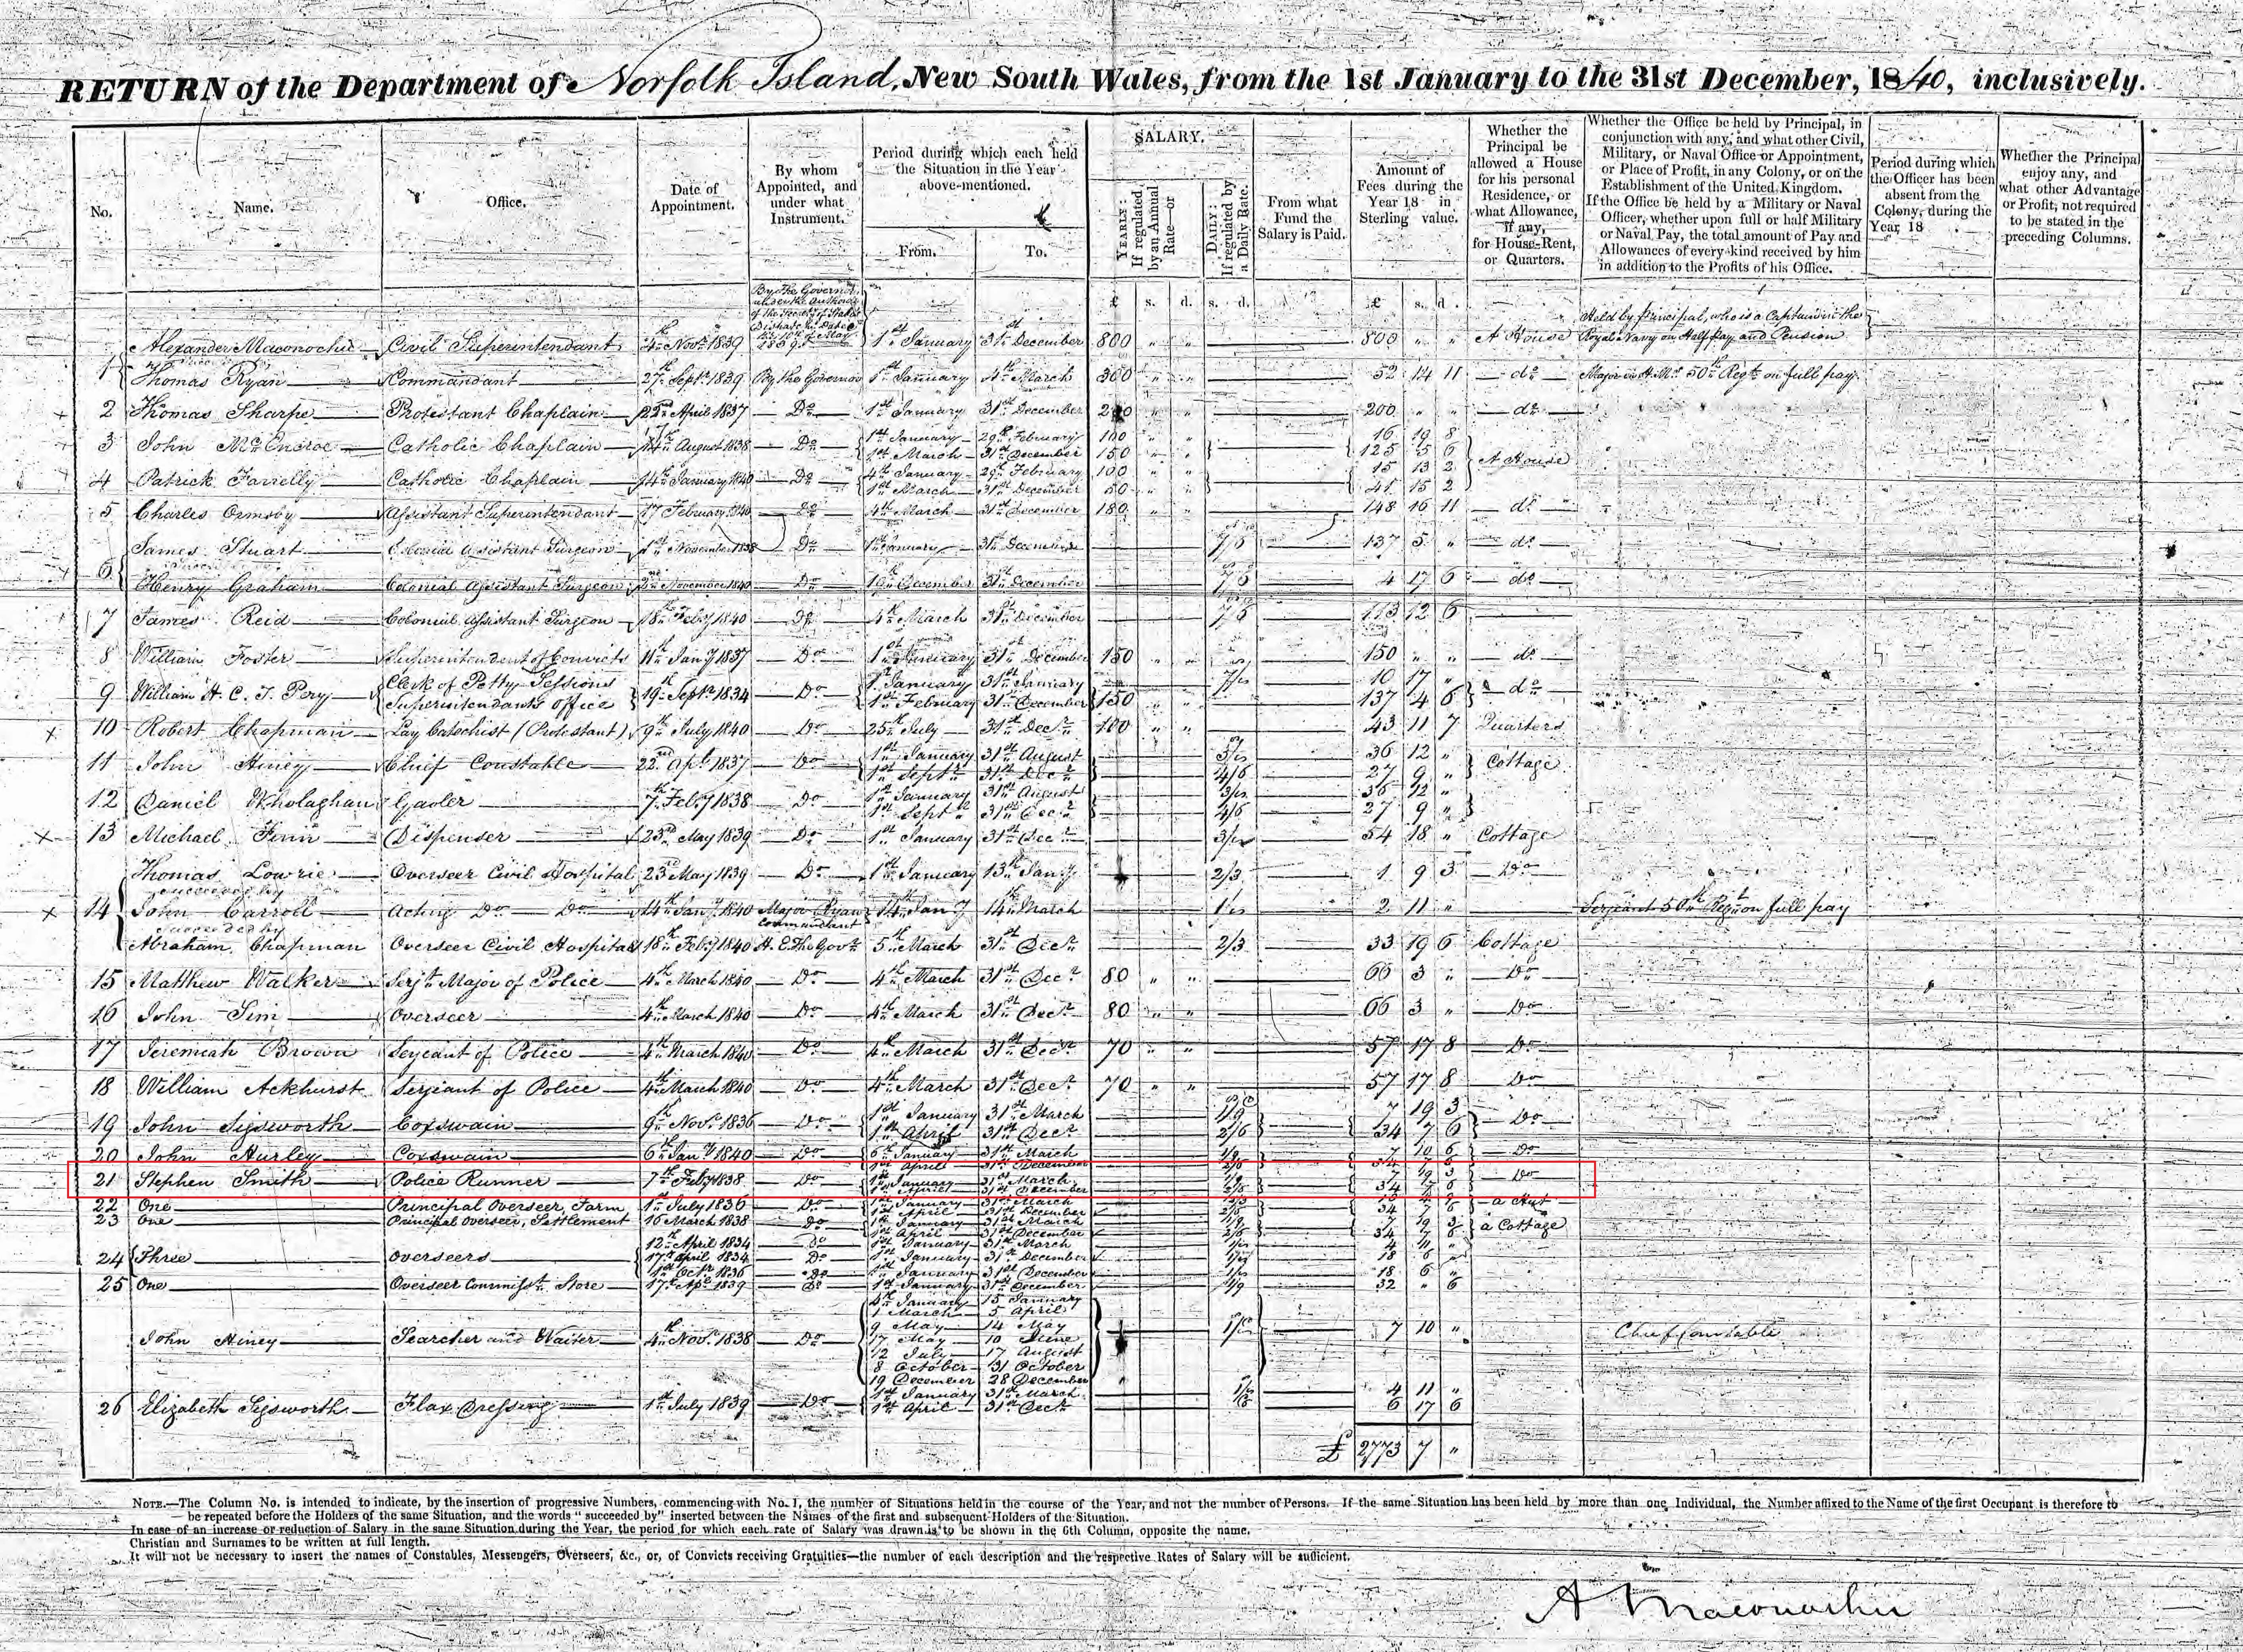 RETURN of the Department of Norfolk Island, New South Wales, from the 1st January to the 31st December, 1840, inclusively.
No. Name. Office. Date of Appointment. By whom Appointed, and under what Instrument. Period during which each held the Situation in the Year above-mentioned. From. To. SALARY. YEARLY: If regulated by an Annual Rate—or DAILY: If regulated by a Daily Rate. From what Fund the Salary is Paid. Amount of Fees during the Year 18 in Sterling value. Whether the Principal be allowed a House for his personal Residence, or what Allowance, If any, for House-Rent, or Quarters. Whether the Office be held by Principal, in conjunction with any, and what other Civil, Military, or Naval Office or Appointment, or Place of Profit, in any Colony, or on the Establishment of the United Kingdom. If the Office be held by a Military or Naval Officer, whether upon full or half Military or Naval Pay, the total amount of Pay and Allowances of every kind received by him in addition to the Profits of his Office. Period during which the Officer has been absent from the Colony, during the Year 18 Whether the Principal enjoy any, and what other Advantage or Profit, not required to be stated in the preceding Columns.
£ s. d. s. d. £ s. d.
By the Governor under the Authority of the Secretary of State's Dispatch Dated 1839
Held by Principal, who is a Captain in the Royal Navy on Half Pay and Pension
1 Alexander Maconochie Civil Superintendant 4th Novr. 1839 1st January 31st December 800 " " 800 " " A House
Thomas Ryan Commandant 27th Septr. 1839 By the Governor 1st January 4th March 300 " " 52 14 11 do Major in H.M's 50th Regt. on full pay
2 Thomas Sharpe Protestant Chaplain 22nd April 1837 Do 1st January 31st December 200 " " 200 " " do
3 John McEncroe Catholic Chaplain 14th August 1838 Do 1st January 29th February 100 " " 16 19 8
1st March 31st December 150 " " 125 5 6 A House
4 Patrick Farrelly Catholic Chaplain 14th January 1840 Do 4th January 29th February 100 " " 15 13 2
1st March 31st December 50 " " 41 15 2
5 Charles Ormsby Assistant Superintendant 17 February 1840 Do 4th March 31st December 180 " " 148 16 11 do
James Stuart Colonial Assistant Surgeon 1st November 1838 Do 1st January 31st December 7/6 137 5 " do
6 Henry Graham Colonial Assistant Surgeon 2nd November 1840 Do 19th December 31st December 7/6 4 17 6 do
7 James Reid Colonial Assistant Surgeon 18th Feby 1840 Do 4th March 31st December 7/6 113 12 6
8 William Foster Superintendent of Convicts 11th Jany 1837 Do 1st January 31st December 150 " " 150 " " do
9 William H. C. T. Pery Clerk of Petty Sessions 19th Septr. 1834 Do 1st January 31st January 7/" 10 17 "
Superintendant's office 1st February 31st December 150 137 4 6 do
10 Robert Chapman Lay Catechist (Protestant) 9th July 1840 Do 25th July 31st Decr. 100 " " 43 11 7 Quarters
11 John Hiney Chief Constable 22nd Apl. 1837 Do 1st January 31st August 3/" 36 12 "
1st Septr. 31st Decr. 4/6 27 9 " Cottage
12 Daniel Wholaghan Gaoler 7th Feby 1838 Do 1st January 31st August 3/" 36 12 "
1st Septr. 31st Decr. 4/6 27 9 "
13 Michael Finn Dispenser 23rd May 1839 Do 1st January 31st Decr. 3/" 54 18 " Cottage
Thomas Lowrie Overseer Civil Hospital 23rd May 1839 Do 1st January 13th Jany 2/3 1 9 3 Do
succeeded by
14 John Carroll Acting Do Do 14th Jany 1840 Major Ryan Commandant 14th Jany 14th March 1/" 2 11 " Serjeant 50th Regt. on full pay
succeeded by
Abraham Chapman Overseer Civil Hospital 18th Feby 1840 H. E. The Govr. 5th March 31st Decr. 2/3 33 19 6 Cottage
15 Matthew Walker Serjt. Major of Police 4th March 1840 Do 4th March 31st Decr. 80 " " 66 3 " Do
16 John Sim Overseer 4th March 1840 Do 4th March 31st Decr. 80 " " 66 3 " Do
17 Jeremiah Brown Serjeant of Police 4th March 1840 Do 4th March 31st Decr. 70 " " 57 17 8 Do
18 William Ackhurst Serjeant of Police 4th March 1840 Do 4th March 31st Decr. 70 " " 57 17 8 Do
19 John Sigsworth Coxswain 9th Novr. 1836 Do 1st January 31st March 1/9 7 19 3
1st April 31st Decr. 2/6 34 7 6 Do
20 John Hurley Coxswain 6th Jany 1840 Do 6th January 31st March 1/9 7 10 6 Do
1st April 31st December 2/6 34 7 6
21 Stephen Smith Police Runner 7th Feby 1838 Do 1st January 31st March 1/9 7 19 3 Do
1st April 31st December 2/6 34 7 6
22 One Principal Overseer, Farm 1st July 1836 Do 1st January 31st March 2/3
1st April 31st December 2/6 34 7 6 a Hut
23 One Principal Overseer, Settlement 16 March 1838 Do 1st January 31st March 1/9 7 19 3
1st April 31st December 2/6 34 7 6 a Cottage
24 Three Overseers 12th April 1834 Do 1st January 31st March 1/" 4 11 "
17th April 1834 Do 1st January 31st December 1/" 18 6 "
1st Octr. 1836 Do 1st January 31st December 1/" 18 6 "
25 One Overseer Commisst. Store 17th Apl. 1839 Do 1st January 31st December 1/9 32 " 6
4th January 15 January
1 March 5 April
9 May 14 May
John Hiney Searcher and Waiter 4th Novr. 1838 Do 17 May 10 June 7 10 " Chief Constable
12 July 17 August
8 October 31 October
19 December 28 December
26 Elizabeth Sigsworth Flax Dressing 1st July 1839 Do 1st January 31st March 4 11 "
1st April 31st Decr. 6 17 6
£ 2773 7 "
NOTE.—The Column No. is intended to indicate, by the insertion of progressive Numbers, commencing with No. 1, the number of Situations held in the course of the Year, and not the number of Persons. If the same Situation has been held by more than one Individual, the Number affixed to the Name of the first Occupant is therefore to
be repeated before the Holders of the same Situation, and the words "succeeded by" inserted between the Names of the first and subsequent Holders of the Situation.
In case of an increase or reduction of Salary in the same Situation during the Year, the period for which each rate of Salary was drawn is to be shown in the 6th Column, opposite the name.
Christian and Surnames to be written at full length.
It will not be necessary to insert the names of Constables, Messengers, Overseers, &c., or, of Convicts receiving Gratuities—the number of each description and the respective Rates of Salary will be sufficient.
A Maconochie